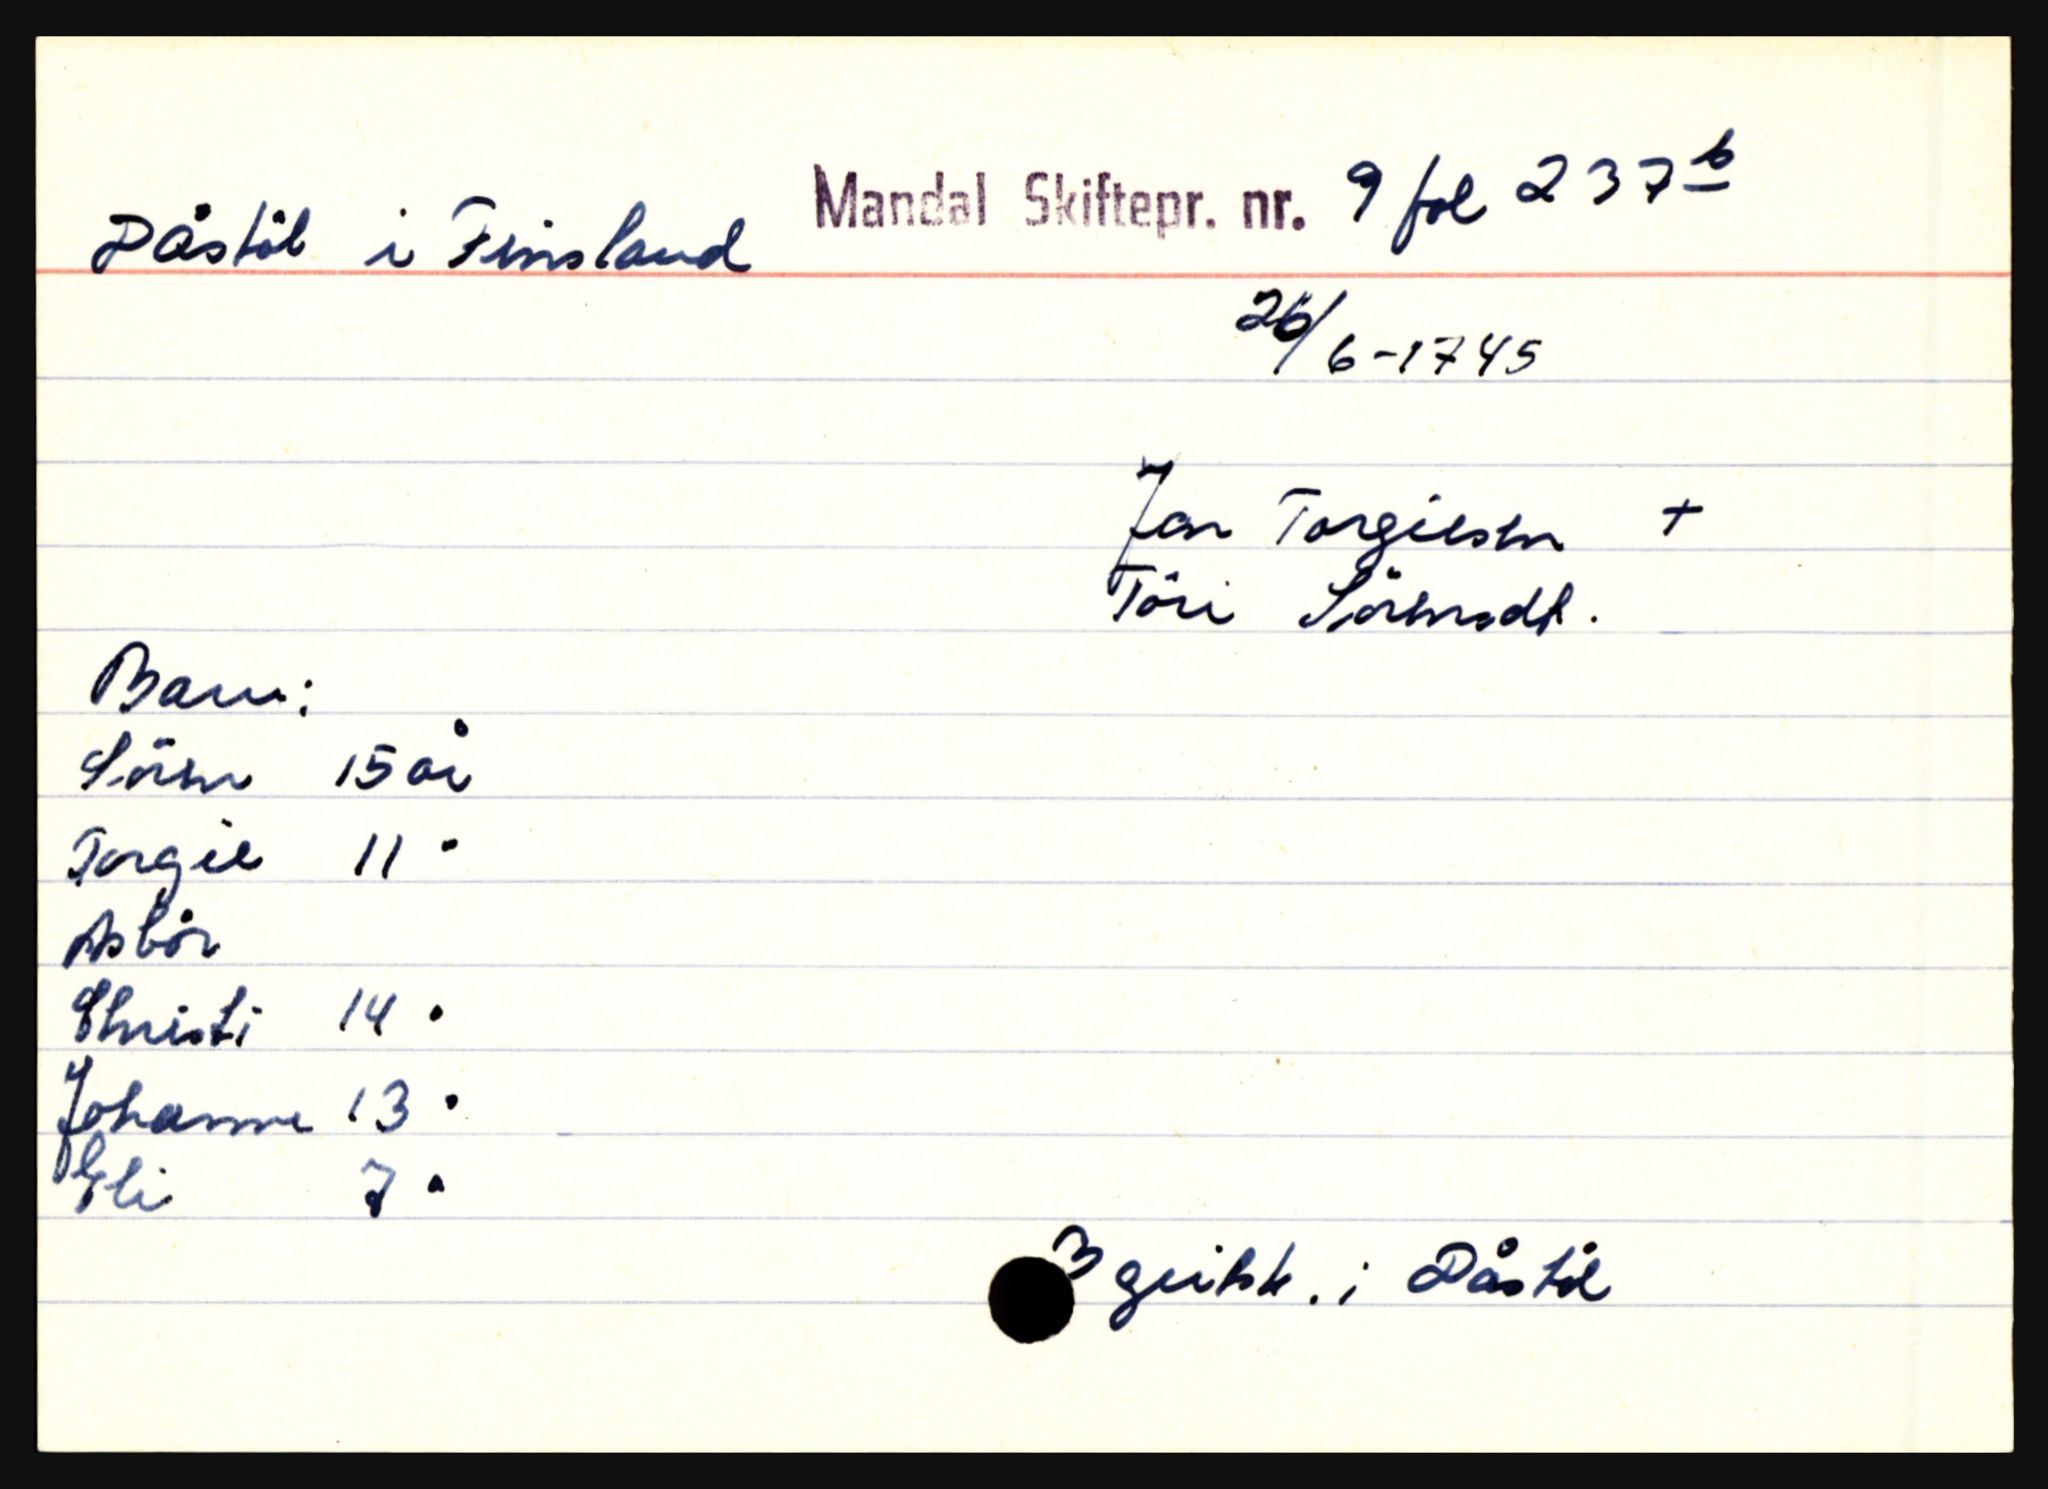 Dåstöl i Finsland Mandal Skiftepr. nr. 9 fol 237 b
26/6-1745
Jon Torgilsen +
Töri Sörensdt.
Barn:
Sören 15 år
Torgil 11 "
Asbör
Christi 14 "
Johanne 13 "
Eli 7 "
3 grihsk. i Dåstöl